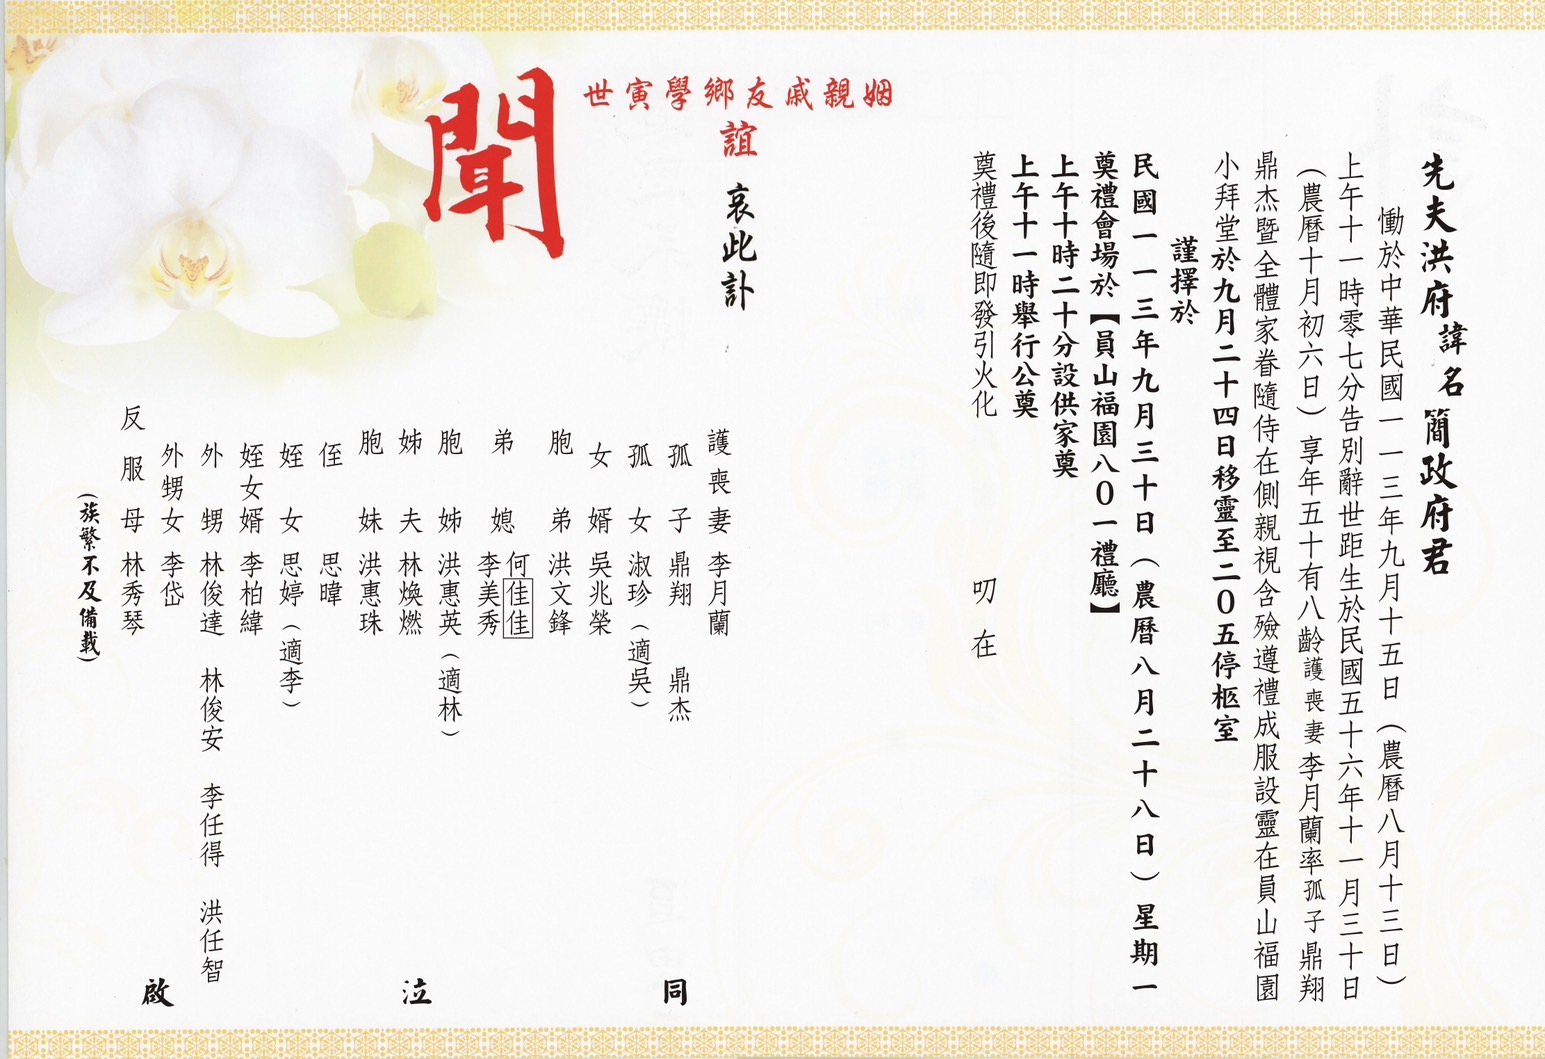 先夫洪府諱名簡政府君
慟於中華民國一一三年九月十五日（農曆八月十三日）
上午十一時零七分告別辭世距生於民國五十六年十一月三十日
（農曆十月初六日）享年五十有八齡護喪妻李月蘭率孤子鼎翔
鼎杰暨全體家眷隨侍在側親視含殮遵禮成服設靈在員山福園
小拜堂於九月二十四日移靈至二0五停柩室
謹擇於
民國一一三年九月三十日（農曆八月二十八日）星期一
奠禮會場於【員山福園八0一禮廳】
上午十時二十分設供家奠
上午十一時舉行公奠
奠禮後隨即發引火化
叨在
姻親戚友鄉學寅世
誼
哀此訃
聞
護喪妻李月蘭
孤子鼎翔 鼎杰
孤女淑珍（適吳）
女婿吳兆榮
胞弟洪文鋒
弟媳何佳佳
李美秀
胞姊洪惠英（適林）
姊夫林煥燃
胞妹洪惠珠
侄思暐
姪女思婷（適李）
姪女婿李柏緯
外甥林俊達 林俊安 李任得 洪任智
外甥女李岱
反服母林秀琴
（族繁不及備載）
同泣啟